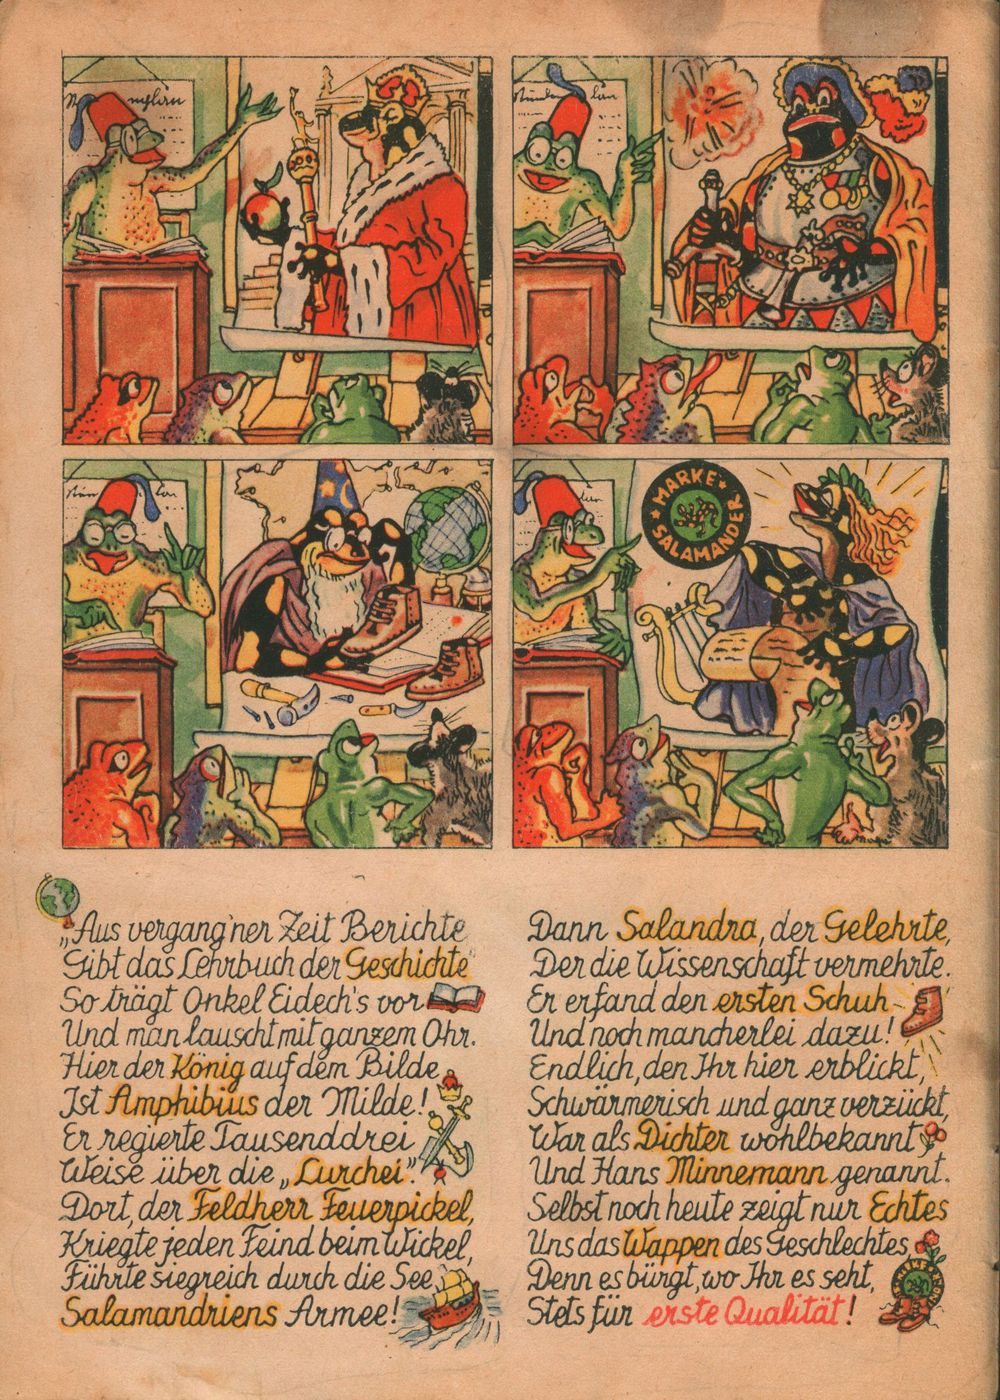 MARKE SALAMANDER
„Aus vergang'ner Zeit Berichte
Gibt das Lehrbuch der Geschichte“
So trägt Onkel Eidech's vor
Und man lauscht mit ganzem Ohr.
Hier der König auf dem Bilde
Ist Amphibius der Milde!
Er regierte Tausenddrei
Weise über die „Lurchei“.
Dort, der Feldherr Feuerpickel,
Kriegte jeden Feind beim Wickel,
Führte siegreich durch die See
Salamandriens Armee!
Dann Salandra, der Gelehrte,
Der die Wissenschaft vermehrte.
Er erfand den ersten Schuh
Und noch mancherlei dazu!
Endlich, den Ihr hier erblickt,
Schwärmerisch und ganz verzückt,
War als Dichter wohlbekannt
Und Hans Minnemann genannt.
Selbst noch heute zeigt nur Echtes
Uns das Wappen des Geschlechtes,
Denn es bürgt, wo Ihr es seht,
Stets für erste Qualität!